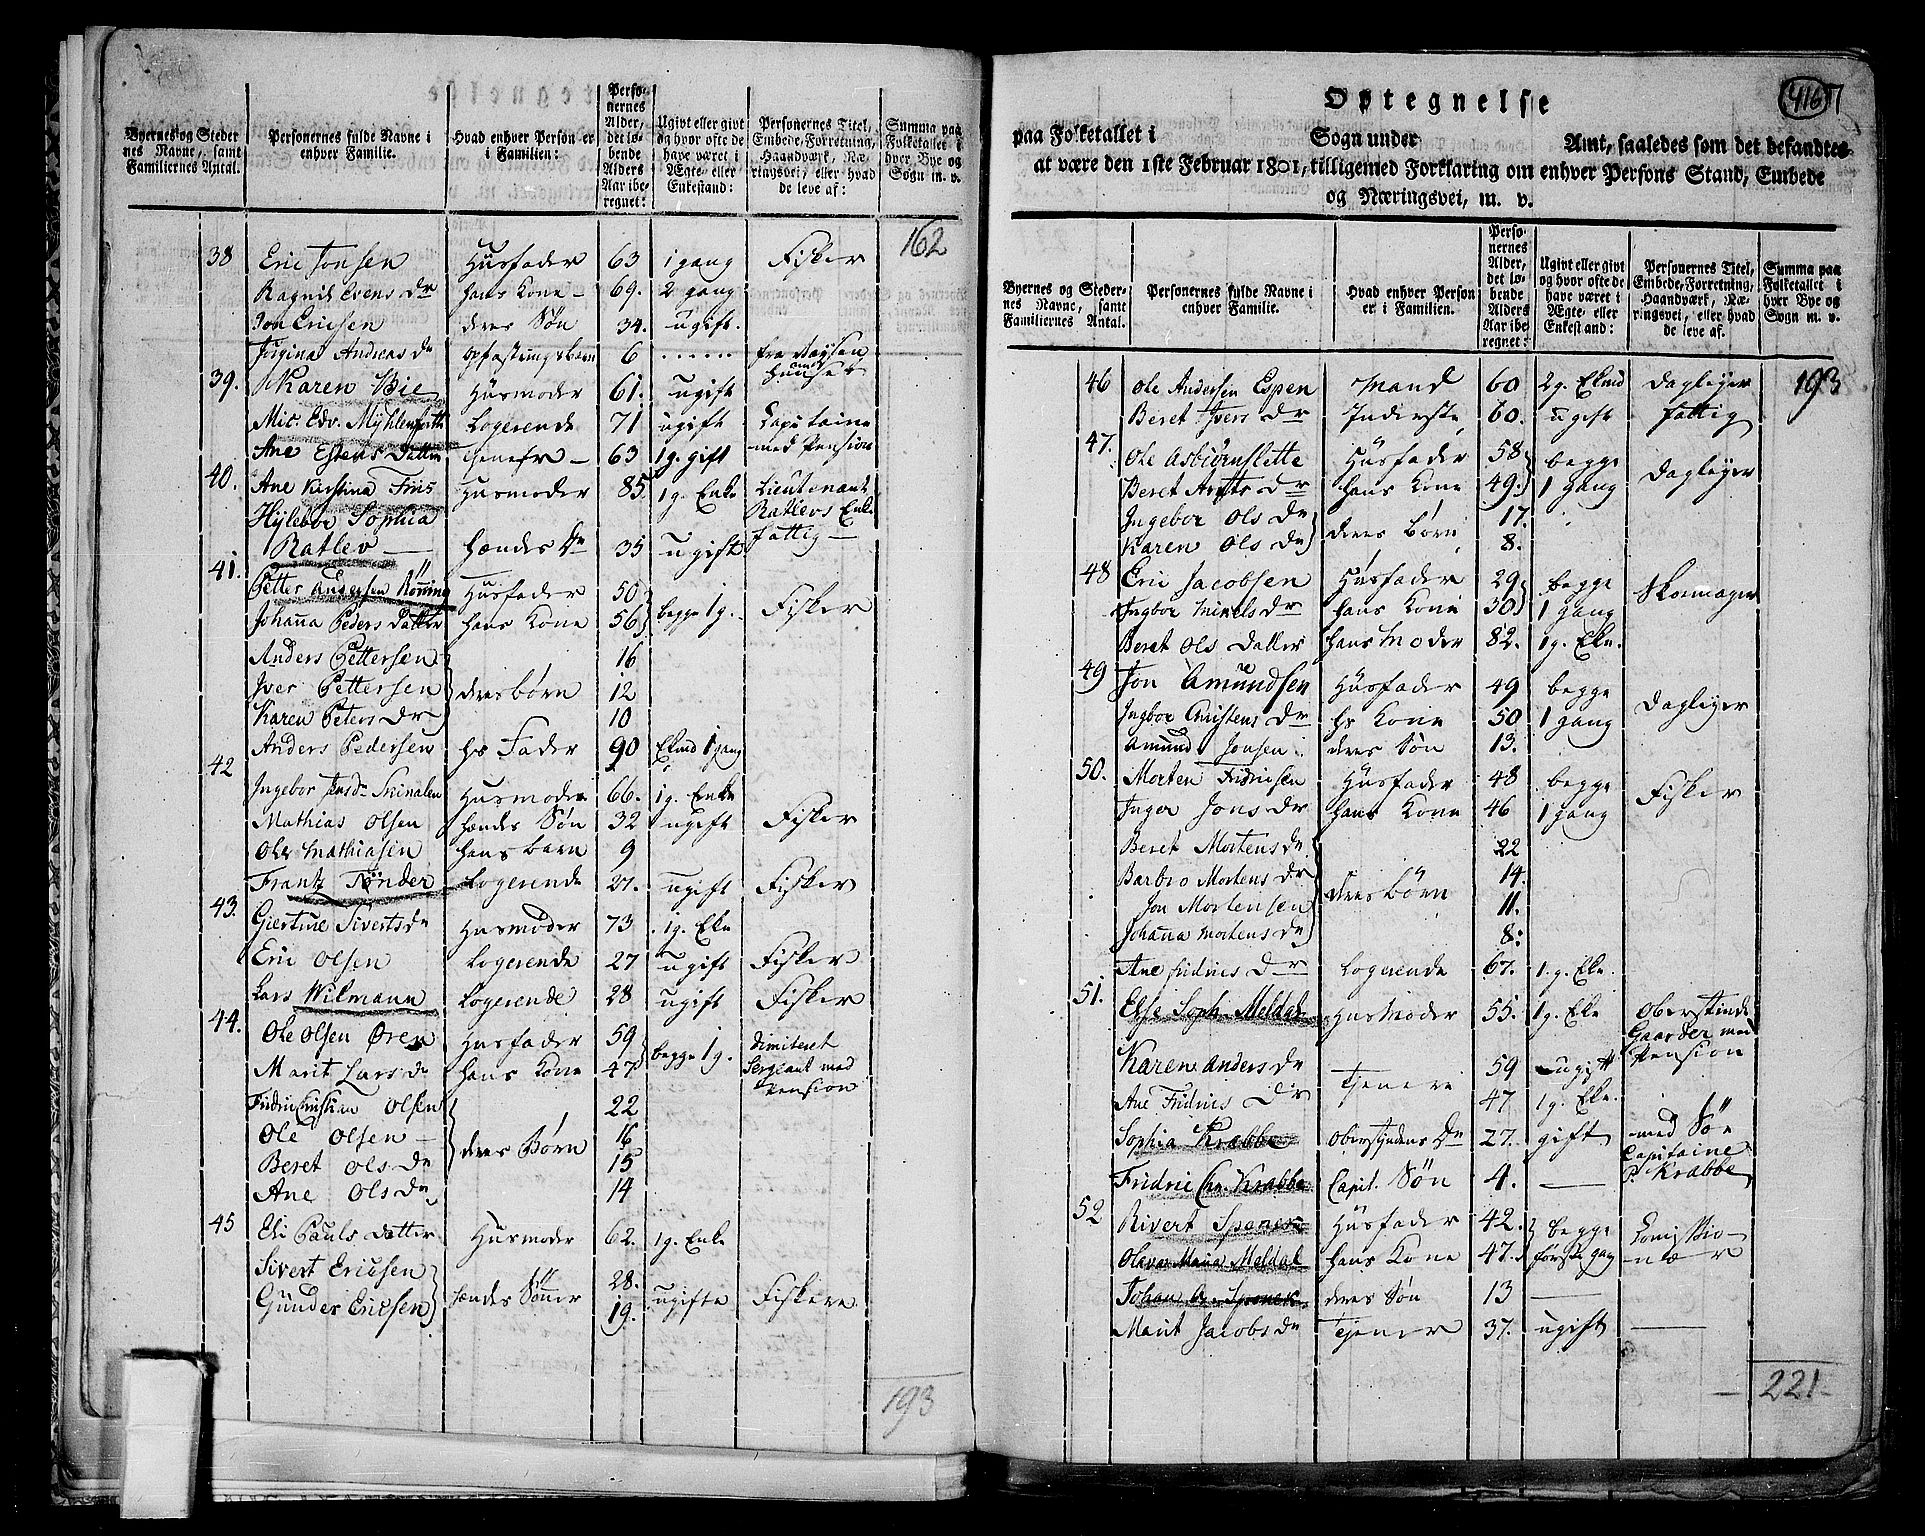 Byernes og Steder
nes Navne, samt
Familiernes Antal.
Personernes fulde Navne i
enhver Familie.
Hvad enhver Person er
i Familien:
Perso-
nernes
Alder,
det lø-
bende
Alders
Aar ibe-
regnet:
Ugivt eller givt
og hvor ofte de
have været i
Ægte- eller
Enkestand:
Personernes Titel,
Embede, Forretning,
Haandværk, Næ-
ringsvei, eller hvad
de leve af:
Summa paa
Folketallet i
hver Bye og
Sogn m. v.
162
38 Eric Jonsen Husfader 63 1 gang Fisker
Ragnil Evens Dr hans Kone - 69. 2 gang
Jon Ericsen deres Søn 34. ugift.
Jørgina Andreas Dr opfostringsbarn 6 ...... fra Waysen
huuset
39. Karen Bie Husmoder 61. ugift
Mic. Edv. Myhlenforth Logerende 71 ugift Capitaine
med Pension
Ane Estens Datter 63 1g. gift
40. Ane Kirstina Friis Husmoder 85. 1g. Enke Lieutenant
Ratlevs Enke
Hylebor Sophia
Ratlev hændes Dr 35 ugift fattig
41. Petter Andersen Rönning Husfader 50
Johanna Peders Datter hans Kone 56 begge 1g. Fisker
Anders Pettersen 16
Iver Pettersen deres børn 12
Karen Peters Dr 10
Anders Pedersen hs Fader 90 Ekmd 1 gang
42 Ingebor Jensdr Skinalen Husmoder 66. 1g. Enke
Mathias Olsen hændes Søn 32 ugift Fisker
Ole Mathiasen hans barn 9
Frantz Tønder Logerende 27. ugift Fisker
43. Giertrue Siverts Dr Husmoder 73 1g. Eke
Eric Olsen Logerende 27 ugift Fisker
Lars Wilmann Logerende 28 ugift Fisker
44. Ole Olsen Ören Husfader 59 dimiteret
Marit Lars Dr hans Kone 47 begge 1g. Sergeant med
Pension
Fridric Cristian Olsen 22
Ole Olsen 16
Beret Ols Dr deres Børn 15
Ane Ols Dr 14
45 Eli Pauls Datter Husmoder 62. 1g. Enke
Sivert Ericsen 28.
Gunder Ericsen hændes Sønner 19. ugifte Fiskere
193
416
Optegnelse
paa Folketallet i Sogn under Amt, saaledes som det befandtes
at være den 1ste Februar 1801, tilligemed Forklaring om enhver Persons Stand, Embede
og Næringsvei, m. v.
Byernes og Steder-
nes Navne, samt
Familiernes Antal.
Personernes fulde Navne i
enhver Familie.
Hvad enhver Person
er i Familien.
Perso-
nernes
Alder,
det lø-
bende
Alders
Aar ibe-
regnet:
Ugivt eller givt
og hvor ofte de
have været i
Ægte- eller
Enkestand:
Personernes Titel,
Embede, Forretning,
Haandværk, Næ-
ringsvei, eller hvad
de leve af.
Summa paa
Folketallet i
hver Bye og
Sogn m. v.
193
46 Ole Andersen Espen Mand 60 2g. Ekmd Dagleyer
Beret Ivers Dr Inderste 60. ugift fattig
47. Ole Asbiørnslette Husfader 58 begge
Beret Arnts Dr hans Kone 49. 1 gang Dagleyer
Ingebor Ols Dr 17.
Karen Ols Dr deres børn 8.
48 Eric Jacobsen Husfader 29 begge Skomager
Ingbor Mikels Dr hans Kone 30 1 gang
Beret Ols Datter hans Moder 82. 1g. Eke.
49 Jon Amundsen Husfader 49 begge
Ingbor Cristens Dr hs Kone 50 1 gang Dagleyer
Amund Jonsen deres Søn 13.
50. Morten Fridricsen Husfader 48 begge Fisker
Inger Jons Dr hans Kone 46 1 gang
Beret Mortens Dr 22
Barbro Mortens Dr 14.
Jon Mortensen deres børn 11.
Johanna Mortens Dr 8.
Ane Fridrics Dr Logerende 67. 1.g. Eke.
51. Else Soph. Meldal Husmoder 55. 1g. Eke Oberstinde
med
Pension
Karen Anders Dr 59 ugift
Ane Fridrics Dr Tjenere 47 1g. Eke.
Sophia Krabbe Oberstindens Dr 27. gift med Sø
Capitaine
P. Krabbe
Fridric Chr. Krabbe Capit. Søn 4.
52 Rivert Husfader 42. begge Comissio-
Maria Meldal hans Kone 47. første gang nær
Johan deres Søn 13
Marit Jacobs Dr Tjener 37. ugift
221